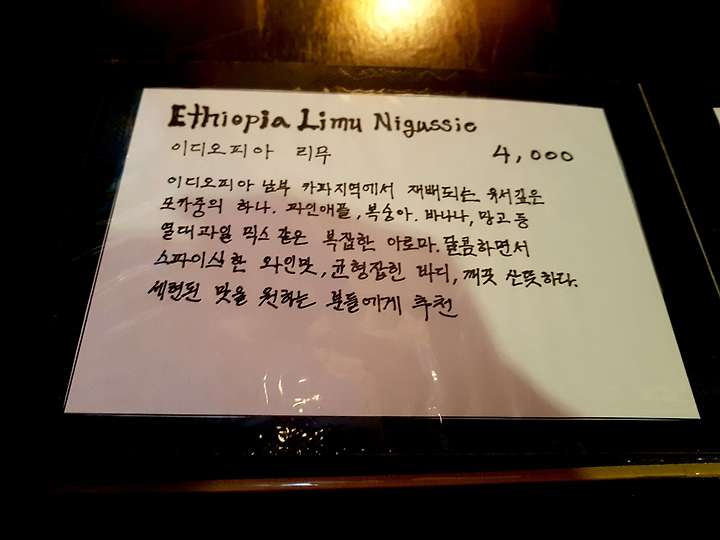 Ethiopia Limu Nigussie
이디오피아 리무 4,000
이디오피아 남부 카파지역에서 재배되는 유서깊은
모카중의 하나. 파인애플, 복숭아. 바나나, 망고 등
열대과일 믹스 같은 복잡한 아로마. 달콤하면서
스파이시한 와인맛, 균형잡힌 바디, 깨끗 산뜻하다.
세련된 맛을 원하는 분들에게 추천